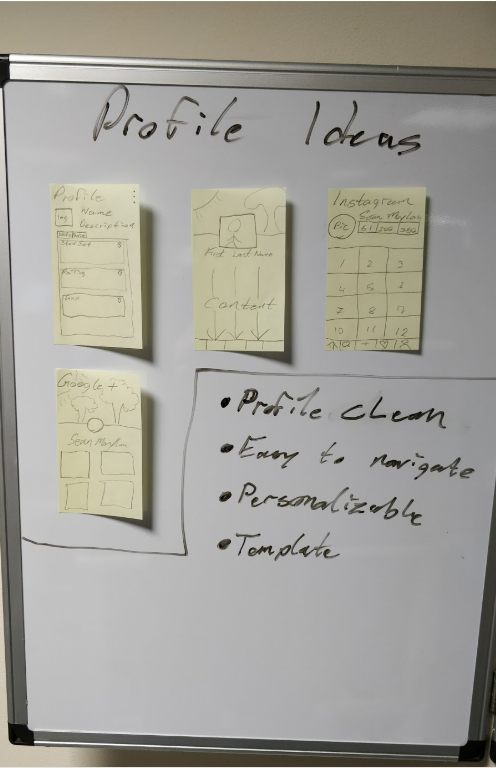 Profile Ideas
Profile
Img
Name
Description
Rating
First Last Name
Content
Instagram
Pic
Sean
1 2 3
4 5 6
7 8 9
10 11 12
Google +
Sean
• Profile clean
• Easy to navigate
• Personalizable
• Template